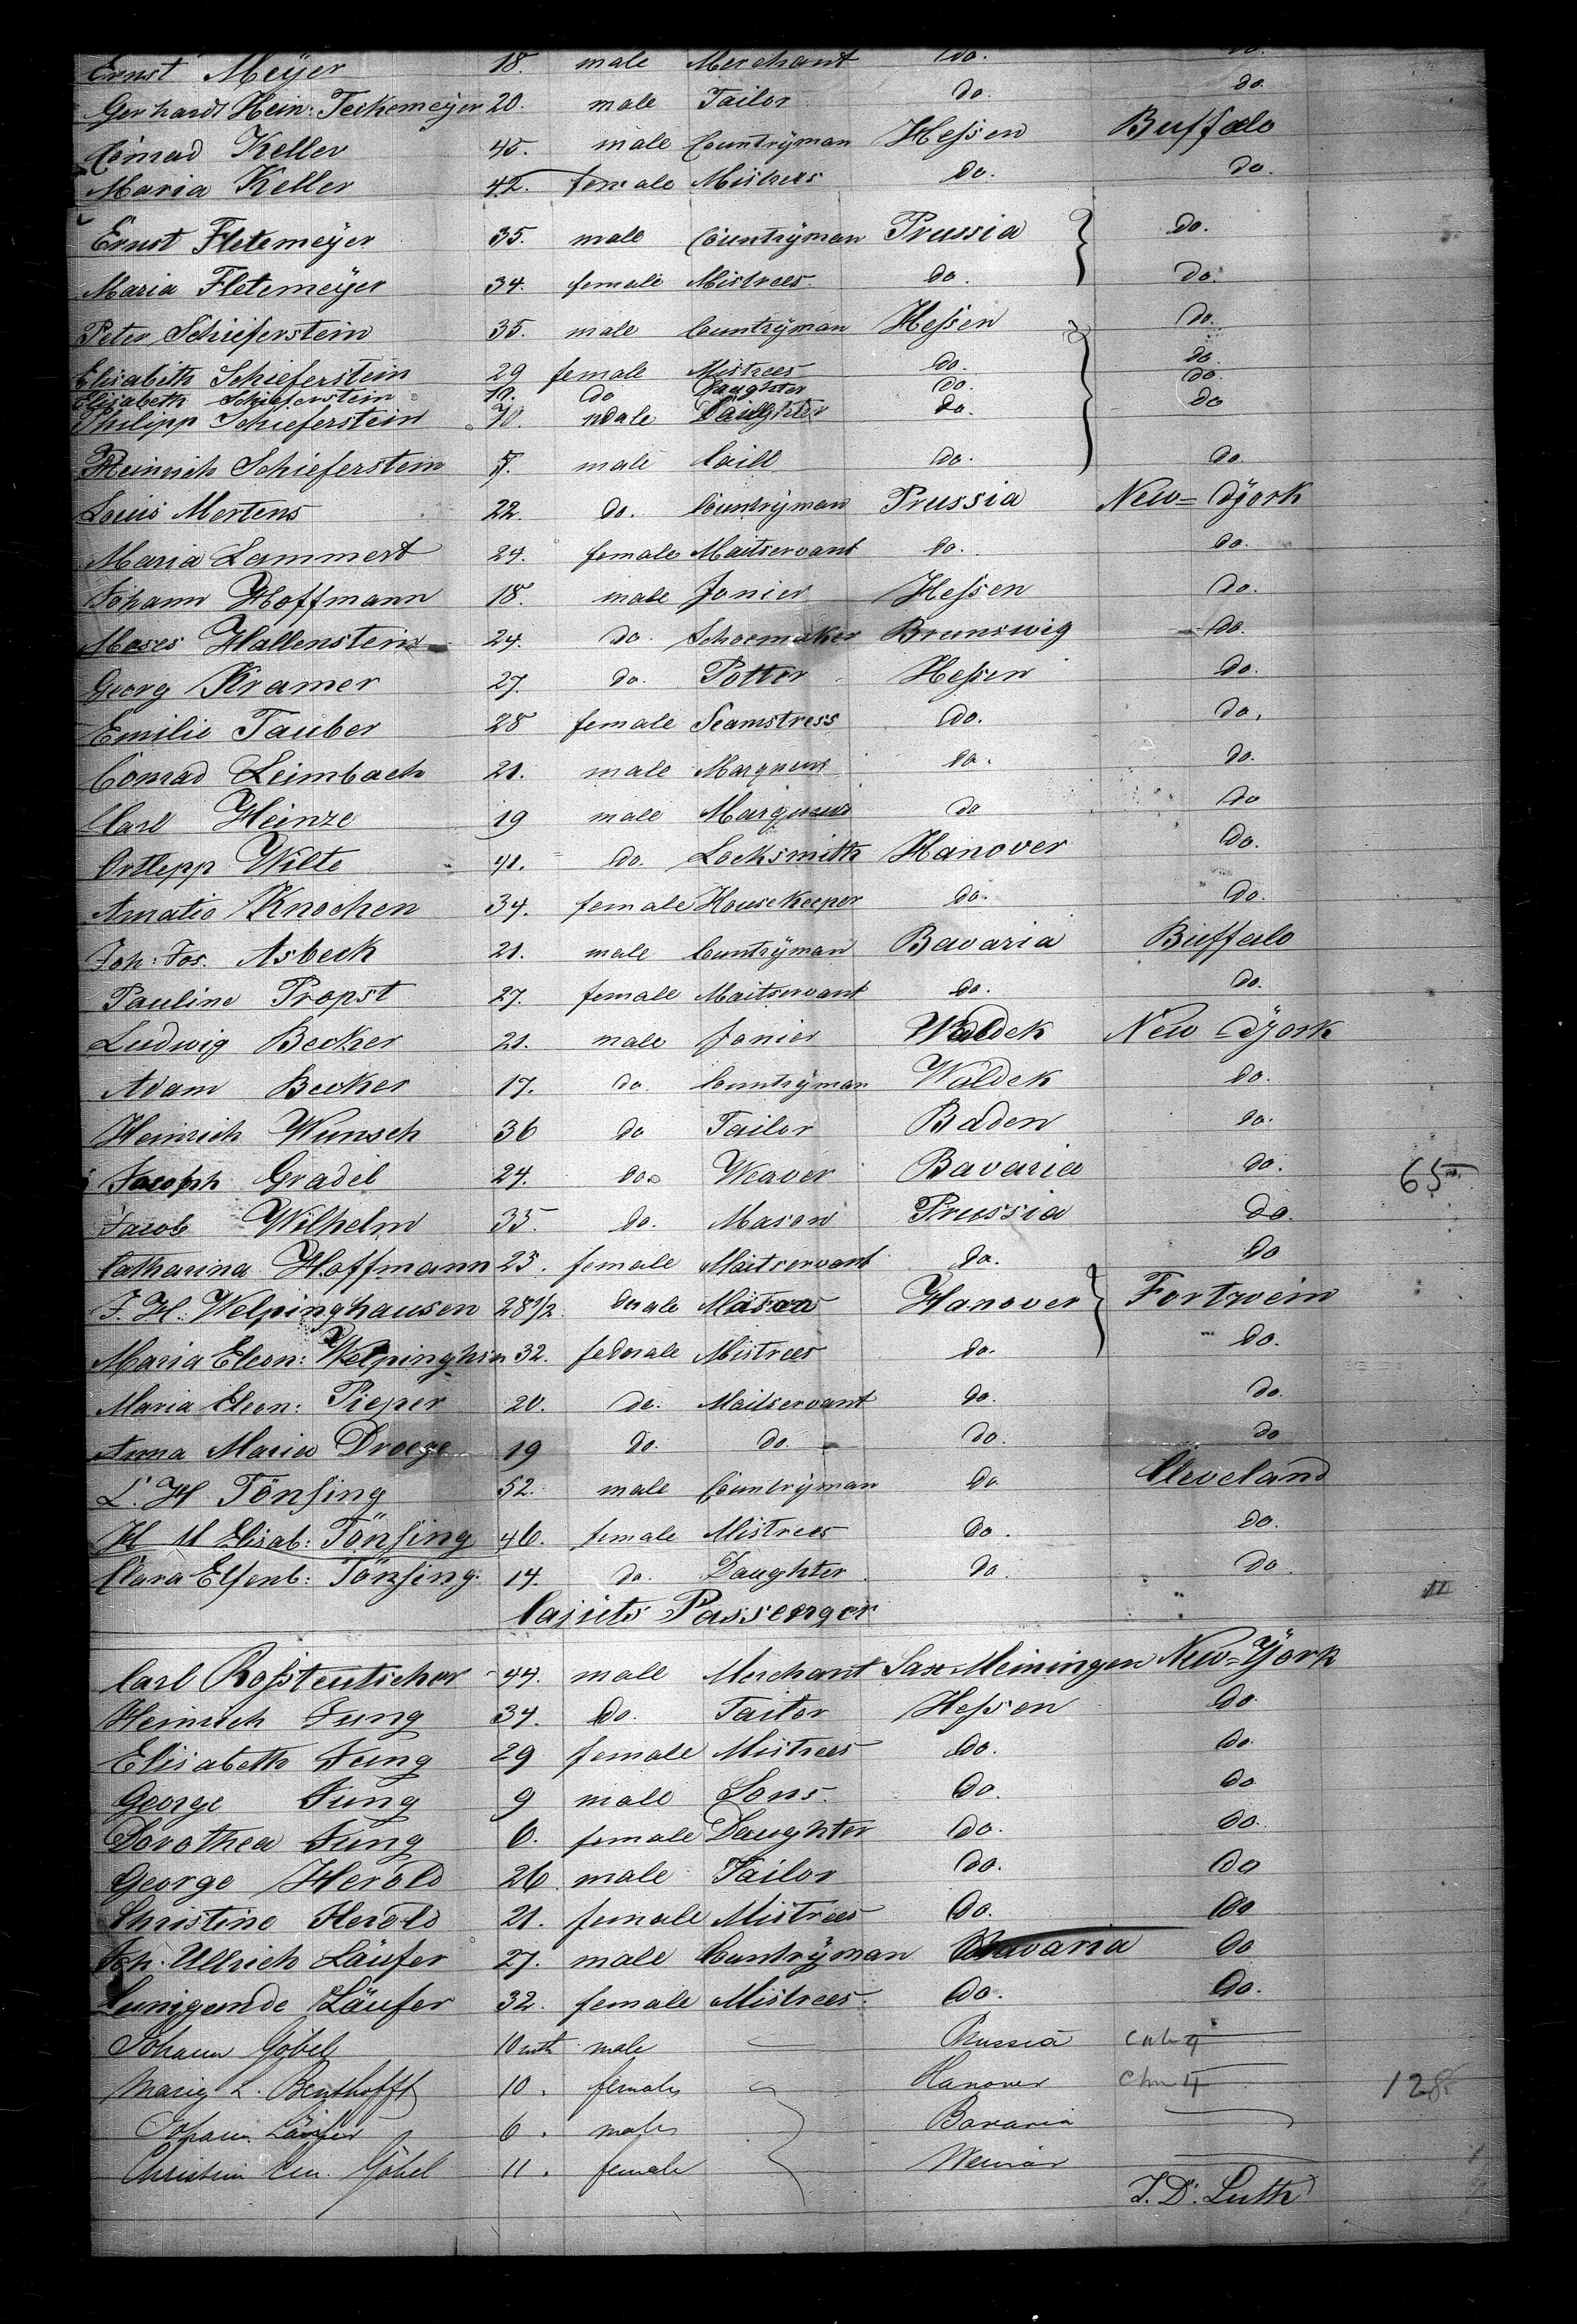 Ernst Meÿer 18. male Merchant do. do.
Gerhardt Hein: Teckemeÿer 20. male Tailor do. do.
Conrad Keller 45. male Countrÿman Heſsen Buffalo
Maria Keller 42. female Mistrees do. do.
Ernst Fletemeÿer 35. male Countrÿman Prussia do.
Maria Fletemeÿer 34. female Mistrees do. do.
Peter Schieferstein 35. male Countrÿman Heſsen do.
Elisabeth Schieferstein 29 female Mistrees do. do.
Elisabeth Schieferstein do Daughter do. do.
Philipp Schieferstein male do. do
Heinrich Schieferstein 7. male do. do.
Louis Mertens 22. do. Countrÿman Prussia New=Yjork
Maria Lammert 24. female Maitservant do. do.
Johann Hoffmann 18. male Jonier Heſsen do.
Moses Hallenstein 24. do. Schoemaker Brunswig do.
Georg Kramer 27. do. Potter Heſsen do.
Emilie Tauber 28 female Seamstress do. do.
Conrad Leimbach 21. male do. do.
Carl Heinze 19 male do do
Ortlepp Wilte 41. do. Locksmith Hanover do.
Amatie Knochen 34. female HouseKeeper do. do.
Joh: Jos. Asbeck 21. male Countrÿman Bavaria Buffalo
Pauline Propst 27. female Maitservant do. do.
Ludwig Becker 21. male Jonier Waldek New Yjork
Adam Becker 17. do. Countrÿman Waldek do.
Heinrich Wunsch 36 do Tailor Baden do.
Joseph Gradel 24. do. Weaver Bavaria do. 65
Jacob Wilhelm 35. do. Mason Prussia do.
Catharina Hoffmann 25. female Maitservant do. do
F. H. Welpinghausen 28 1/2 male Mason Hanover Fortwein
Maria Eleon: Welpinghsn 32. female Mistrees do. do.
Maria Eleon: Pieper 20. do. Maitservant do. do.
Anna Maria Droege 19 do. do. do. do
C. H. Tönſing 52. male Countrÿman do Cleveland
H M Elisab: Tönſing 46. female Mistrees do. do.
Clara Elsenb: Tönſing. 14. do. Daughter do. do.
Cajuts Passenger
Carl Roſsteutscher 44. male Merchant Sax Meiningen New=Yjork
Heinrich Jung 34. do. Tailor Heſsen do
Elisabeth Jung 29 female Mistrees do. do.
George Jung 9 male Sons. do. do
Dorothea Jung 6. female Daughter do. do.
George Herold 26 male Tailor do. do
Christine Herold 21. female Mistrees do. do
Joh. Ullrich Läufer 27. male Countrÿman Bavaria do
Cunigunde Läufer 32. female Mistrees. do. do.
Johann Göbel 10 mth male Prussia
Marig L. Benthofft 10. female Hanover 128
Johann Läufer 6. male Bavaria
Christin Göbel 11. female Weimar
J. D. Luth